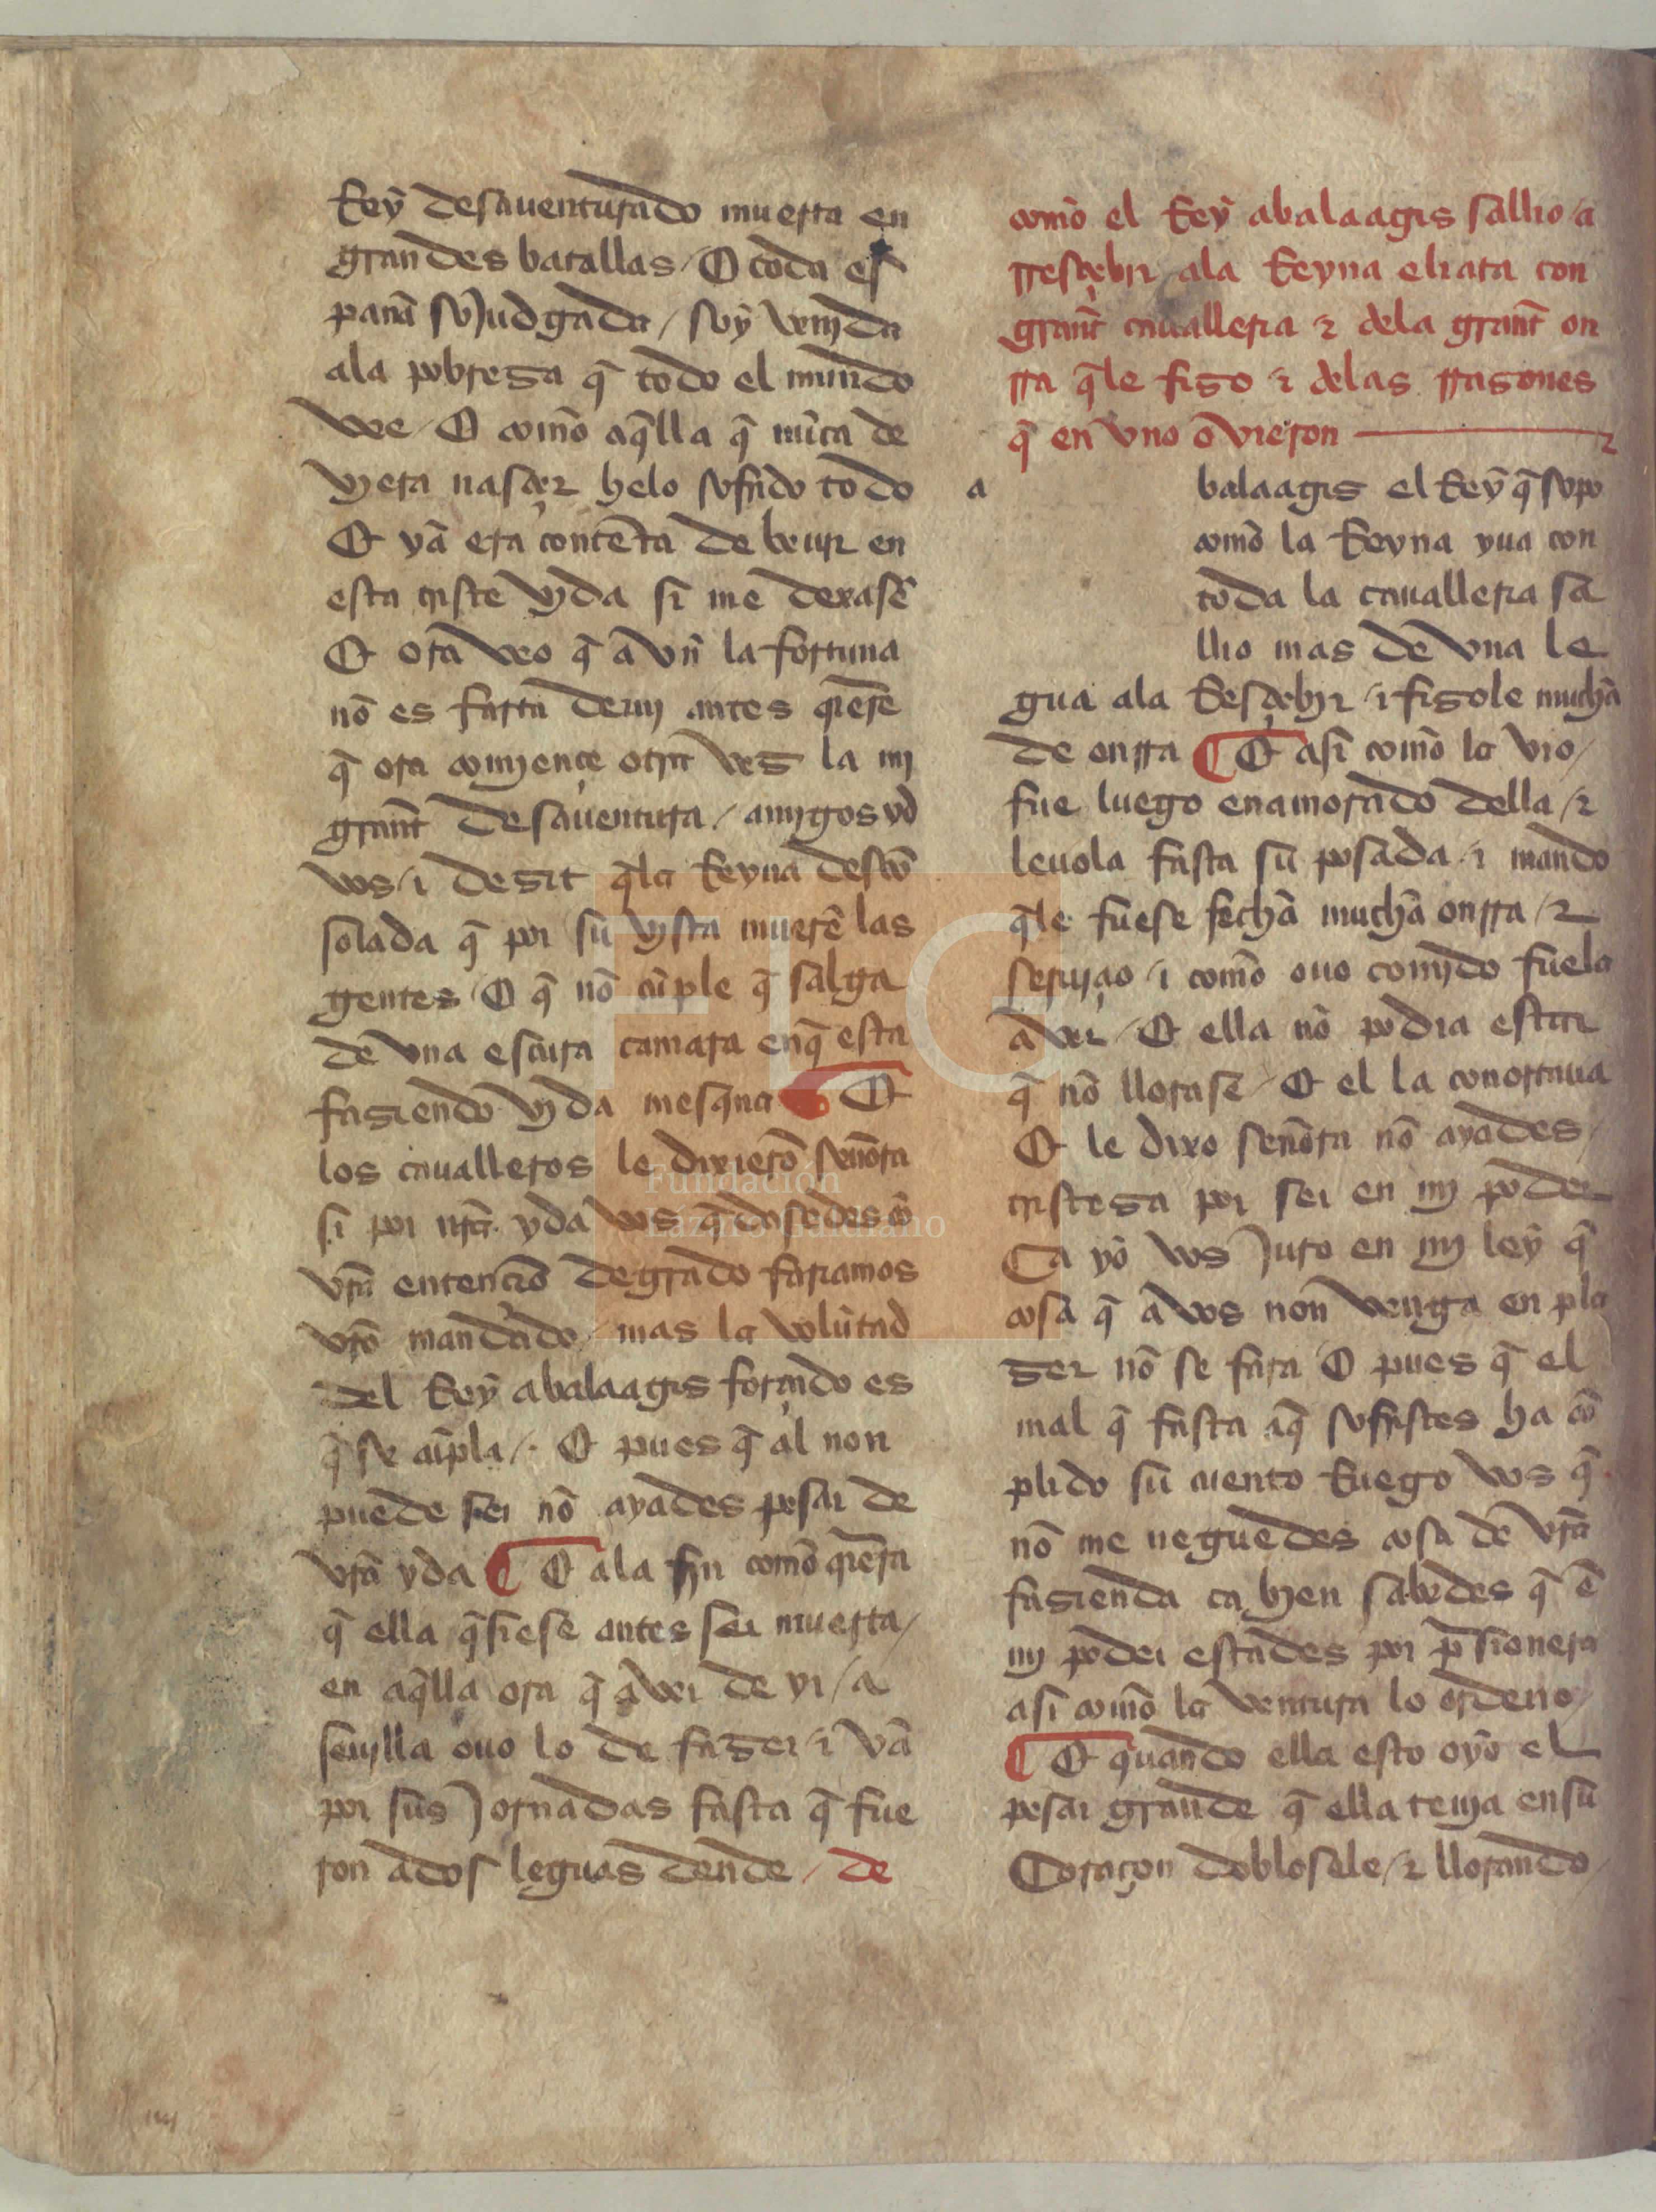 Rey desauenturado muerta en
grandes batallas / O toda es
pana sojudgada / soy venjda
ala pobresa q̃ todo el mundo
vee / O com̃o aq̃lla q̃ nũca de
vjera nasçer helo sofrido todo
Et ya era contẽta de beujr en
esta triste vjda si me dexasẽ
Et ora veo q̃ a vñ la fortuna
nõ es farta de mj antes q̃ere
q̃ ora comjençe otra ves la mj
grant̃ desauentura / amjgos yd
vos / i desit q̃la Reyna descõ
solada q̃ por su vista muerẽ las
gentes / O q̃ nõ cũple q̃ salga
de vna escura camara enq̃ esta
fasiendo vjda mesq̃na ¶ Et
los caualleros le dixierõ señora
si por nr̃a yda vos q̃dasedes cõ
vr̃a entenciõ degrado fariamos
vr̃o mandado / mas la volũtad
del Rey abalaagis forçado es
q̃ se cũpla / . Et pues q̃ al non
puede ser nõ ayades pesar de
vr̃a yda ¶ Et ala fin com̃o q̃era
q̃ ella q̃siese antes ser muerta /
en aq̃lla ora q̃ aver de yr / a
seujlla ouo lo de faser / i vã
por sus jornadas fasta q̃ fue
ron ados leguas dende / de
com̃o el Rey abalaagis sallio / a
rresçebir ala Reyna eliata con
grant̃ caualleria ⁊ dela grant̃ on
rra q̃le fiso ⁊ delas rrasones
q̃ en vno ovieron
a balaagis el Rey q̃ sopo
com̃o la Reyna yua con
toda la caualleria sa
llio mas de vna le
gua ala Resçebjr / i fisole mucha
de onrra ¶ Et asi com̃o la vio /
fue luego enamorado della / ⁊
leuola fasta su posada / i mando
q̃le fuese fecha mucha onrra / ⁊
serujçio / i com̃o ouo comjdo fuela
a ver / Et ella nõ podia estar
q̃ nõ llorase / Et el la conortaua
Et le dixo señora nõ ayades /
tristesa por ser en mj poder
Ca yo vos juro en mj ley q̃
cosa q̃ a vos non venga en pla
ser nõ se fara / O pues q̃ el
mal q̃ fasta aq̃ sofristes ha cõ
plido su cuento Ruego vos q̃
nõ me neguedes cosa de vr̃a
fasienda ca bjen sabedes q̃ ẽ
mj poder estades por p̃sionera
asi com̃o la ventura lo ordeno /
¶ Et quando ella esto oyo el
pesar grande q̃ ella tenja ensu
Coraçon doblosele / ⁊ llorando /
Fundación
Lázaro Galdiano
FLG